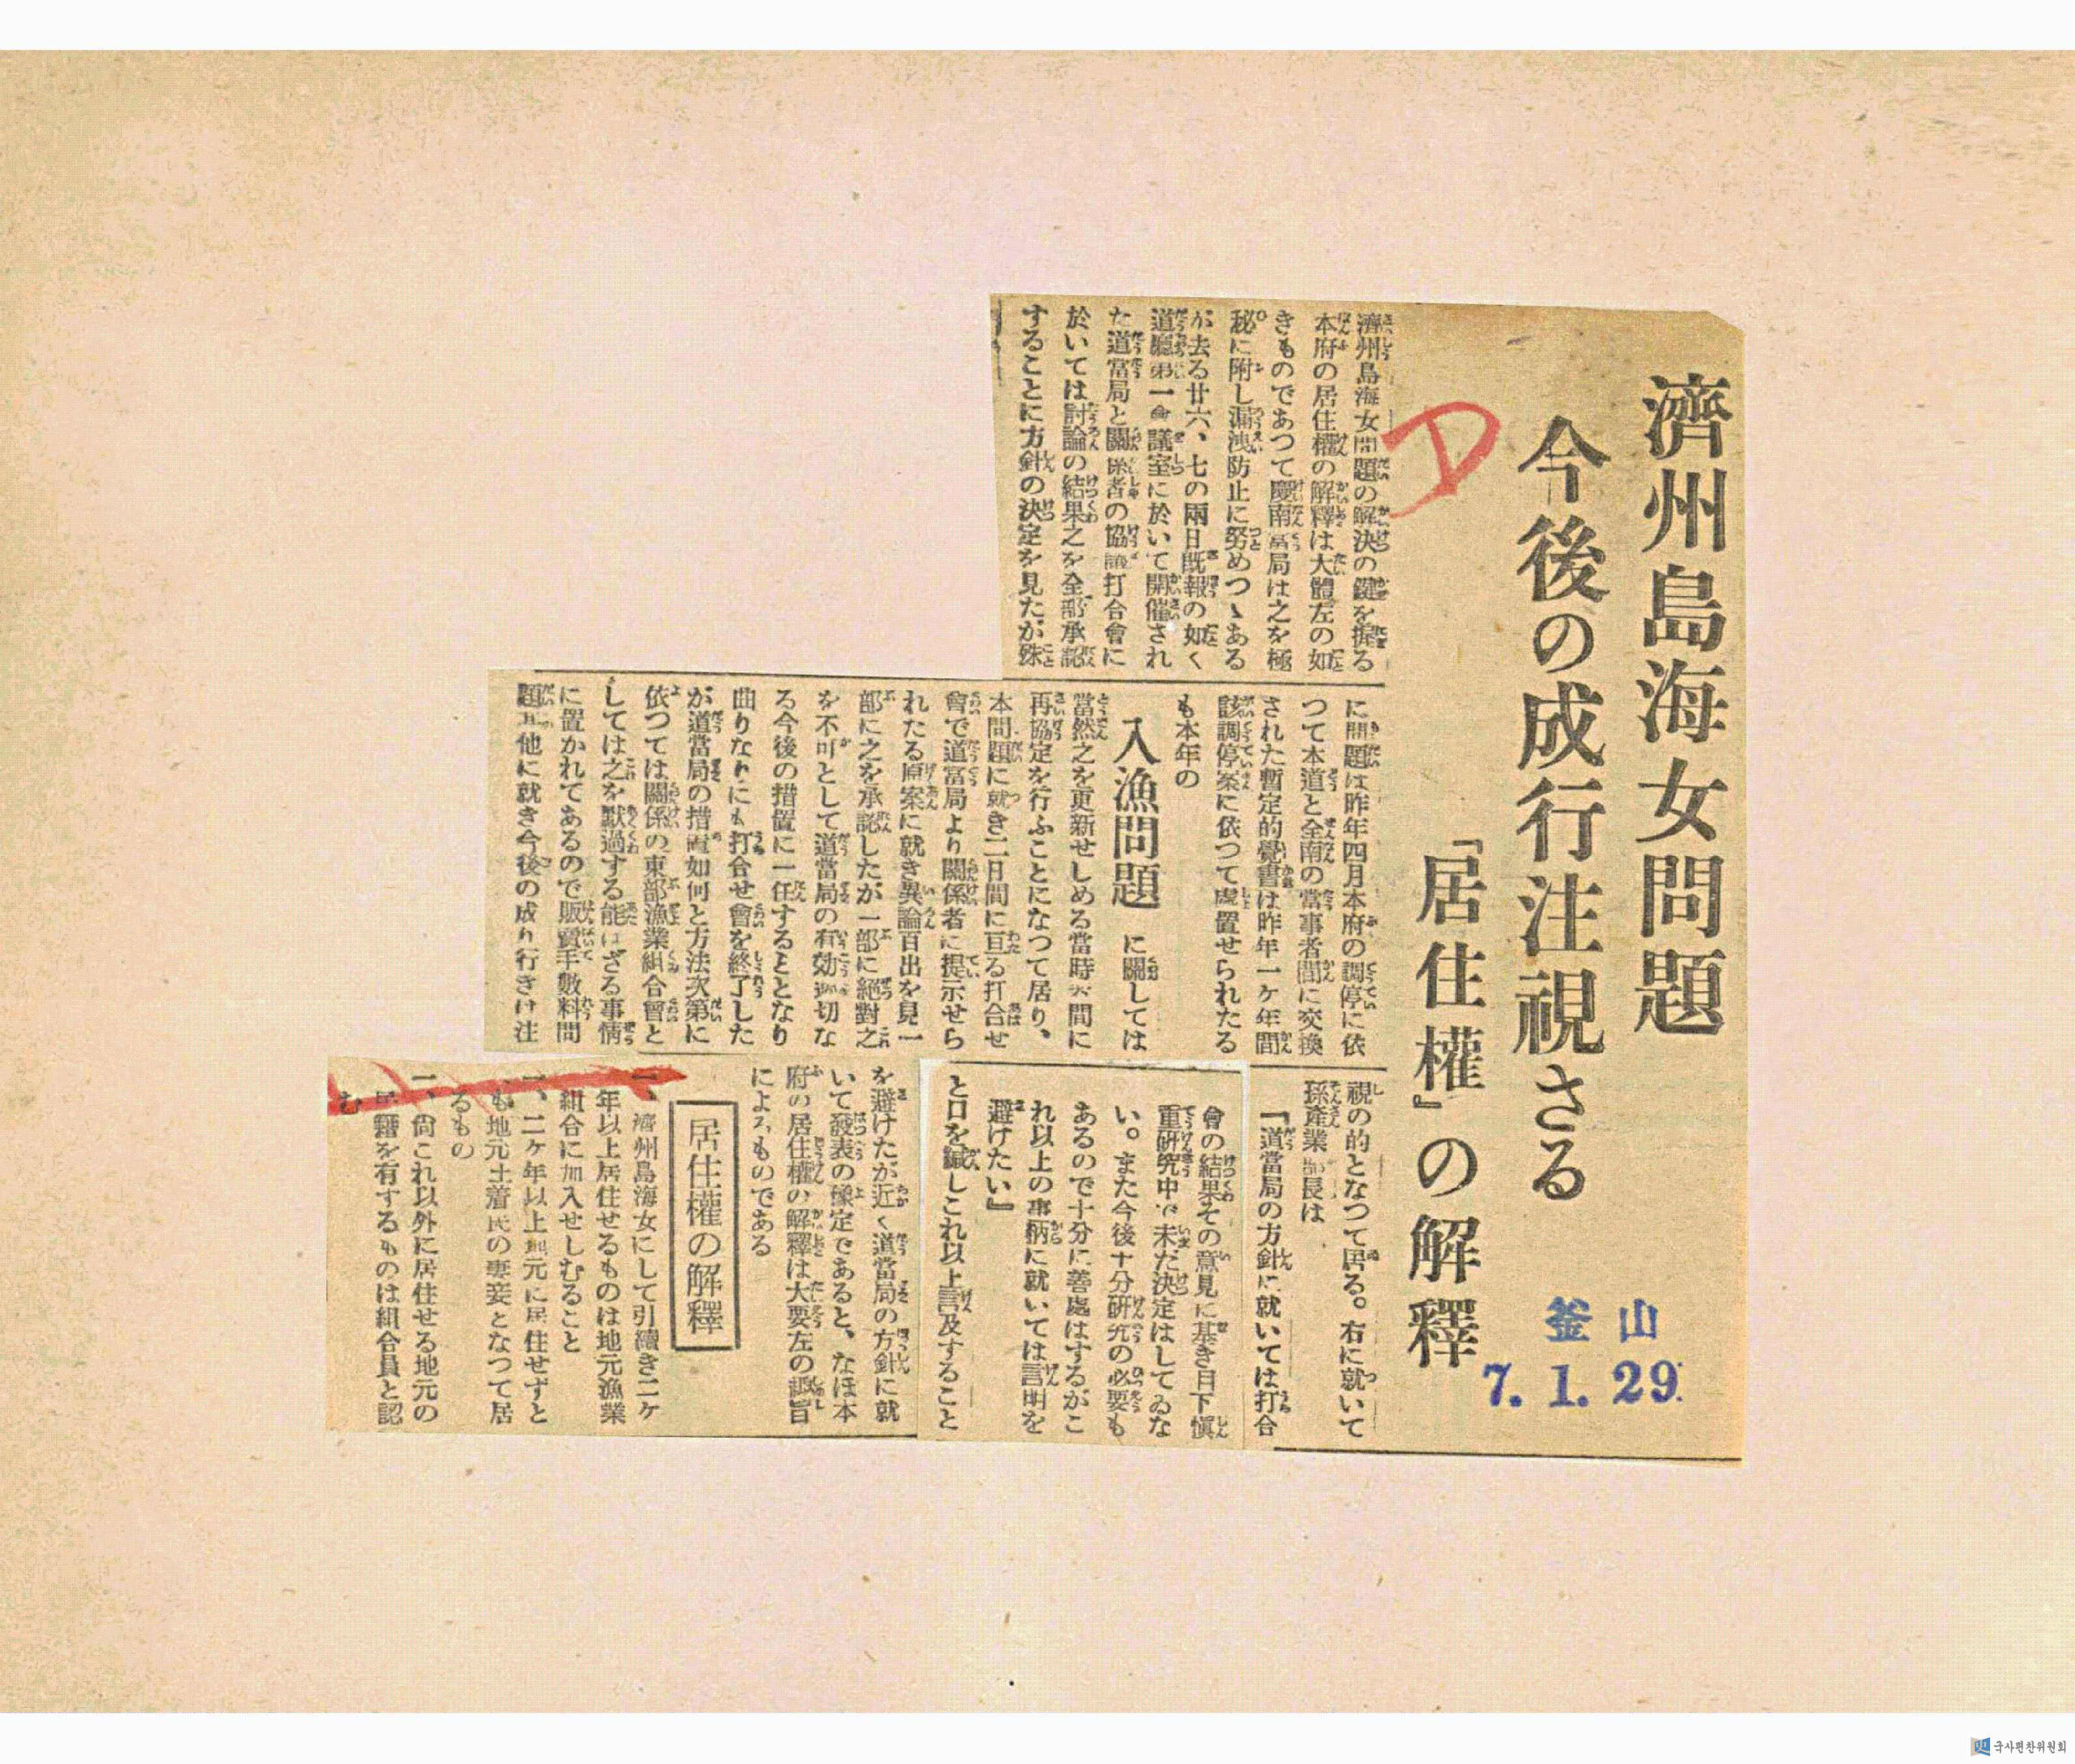 濟州島海女問題
今後の成行注視さる
『居住權』の解釋
釜山
7. 1. 29.
濟州島海女問題の解決の鍵を握る
本府の居住權の解釋は大體左の如
きものであつて慶南當局は之を極
秘に附し漏洩防止に努めつゝある
が去る廿六、七の兩日既報の如く
道廳第一會議室に於いて開催され
た道當局と關係者の協議打合會に
於いては討論の結果之を全部承認
することに方針の決定を見たが殊
に問題は昨年四月本府の調停に依
つて本道と全南の當事者間に交換
された暫定的覺書は昨年一ケ年間
該調停案に依つて處置せられたる
も本年の
入漁問題 に關しては
當然之を更新せしめる當時 間に
再協定を行ふことになつて居り、
本問題に就き二日間に亘る打合せ
會で道當局より關係者に提示せら
れたる原案に就き異論百出を見一
部に之を承認したが一部に絕對之
を不可として道當局の有効適切な
る今後の措置に一任するととなり
曲りなりにも打合せ會を終了した
が道當局の措置如何と方法次第に
依つては關係の東部漁業組合會と
しては之を默過する能はざる事情
に置かれてあるので販賣手數料問
題其他に就き今後の成り行きは注
視の的となつて居る。右に就いて
孫產業部長は
『道當局の方針に就いては打合
會の結果その意見に基き目下愼
重研究中で未だ決定はしてゐな
い。また今後十分硏究の必要も
あるので十分に善處はするがこ
れ以上の事柄に就いては言明を
避けたい』
と口を緘しこれ以上言及すること
を避けたが近く道當局の方針に就
いて發表の豫定であると、なほ本
府の居住權の解釋は大要左の趣旨
によるものである
居住權の解釋
一、濟州島海女にして引續き二ケ
年以上居住せるものは地元漁業
組合に加入せしむること
一、二ケ年以上地元に居住せずと
も地元土着民の妻妾となつて居
るもの
一、尙これ以外に居住せる地元の
民籍を有するものは組合員と認
む
국사편찬위원회